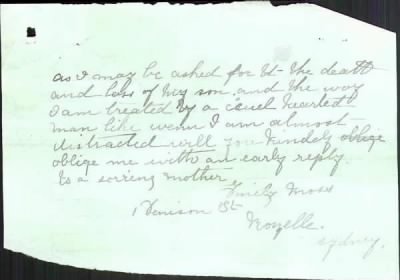 as I may be asked for it the death
and loss of my son and the way
I am treated by a cruel hearted
man like wenn I am almost
distracted will you kindely oblige
oblige me with an early reply
to a sorring mother
Emily Moss
1 Denison St
Rozelle
Sydney.